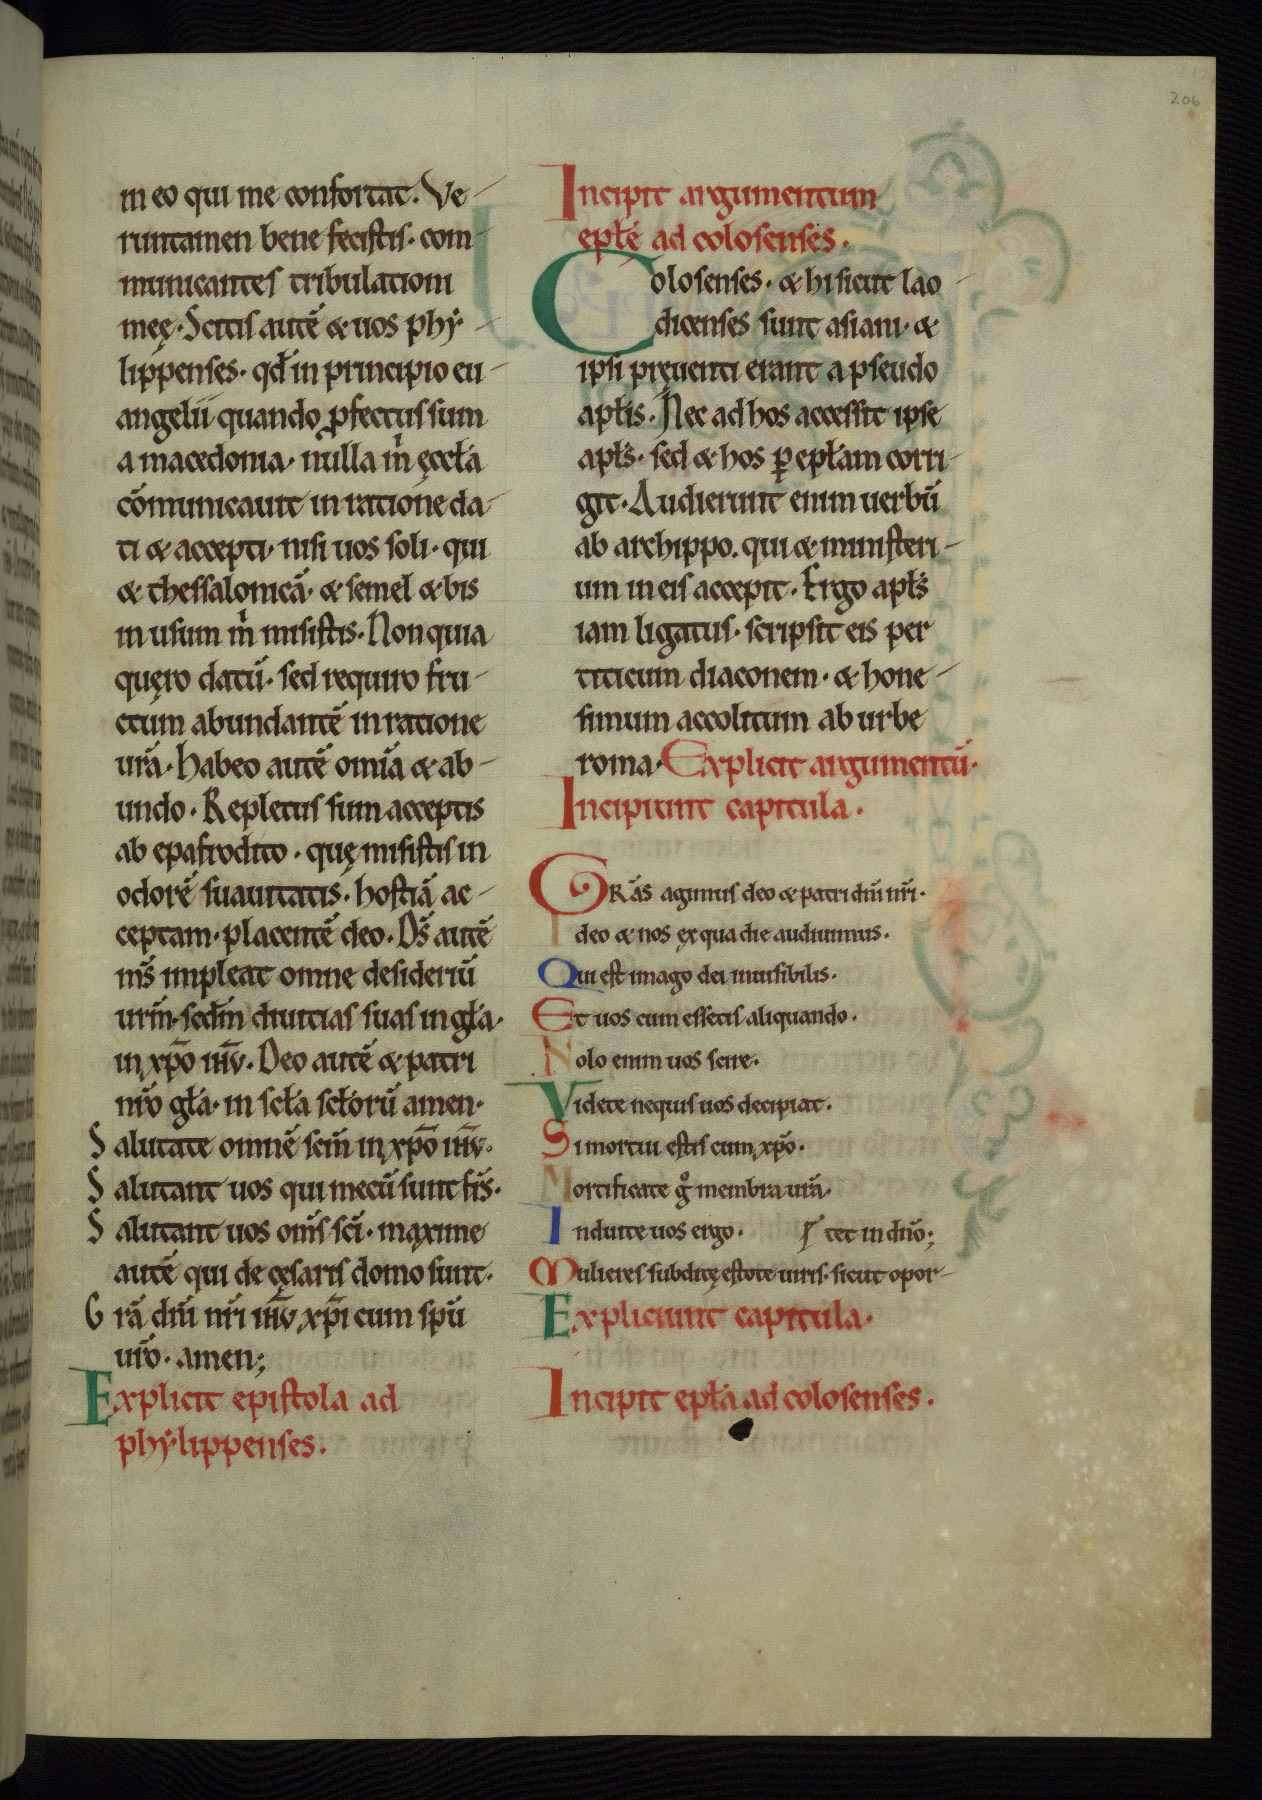 206
in eo qui me confortat. Ve
runtamen bene fecistis. com
municantes tribulationi
meę. Scitis autē & uos phẏ
lippenses. qđ in principio eu
angelii quando ꝓfectus sum
a macedonia. nulla m̍ ęccła
cōmunicauit in ratione da
ti & accepti. nisi uos soli. qui
& thessalonicā. & semel & bis
in usum m̍ misistis. Non quia
quęro datū. sed requiro fru
ctum abundantē in ratione
urā. Habeo autē omīa & ab
undo. Repletus sum acceptis
ab epafrodito. quę misistis in
odorē suauitatis. hostiā ac
ceptam. placentē deo. Dš autē
mš impleat omne desideriū
urm̄. sedm̄ diuitias suas in gła.
in xp̄o ih̄u. Deo autē & patri
nrō gła. in scła scłorū amen.
Salutate omnē scm̄ in xp̄o ih̄u.
Salutant uos qui mecū sunt frs̄.
Salutant uos om̄s sci̅. maxime
autē qui de cęsaris domo sunt.
Grā dn̄i nrī ih̄u xp̄i cum spū
urō. amen;
Explicit epistola ad
phẏlippenses.
Incipit argumentum
epłe ad colosenses.
Colosenses. & hi sicut lao
dicenses sunt asiani. &
ipsi pręuenti erant a pseudo
apłis. Nec ad hos accessit ipse
apłs. sed & hos ꝑ epłam corri
git. Audierunt enim uerbū
ab archippo. qui & ministeri
um in eis accepit. Ergo apłs
iam ligatus. scripsit eis per
titicum diaconem. & hone
simum accolitum ab urbe
roma. Explicit argumentū.
Incipiunt capitula.
GRĀS agimus deo & patri dn̄i nrī.
Ideo & nos ex qua die audiuimus.
Qui est imago dei inuisibilis.
Et uos cum essetis aliquando.
Nolo enim uos scire.
Videte nequis uos decipiat.
Si mortui estis cum xp̄o.
Mortificate gͦ membra urā.
Induite uos ergo. tet in dnō;
Mulieres subditę estote uiris. sicut opor
Expliciunt capitula.
Incipit epła ad colosenses.